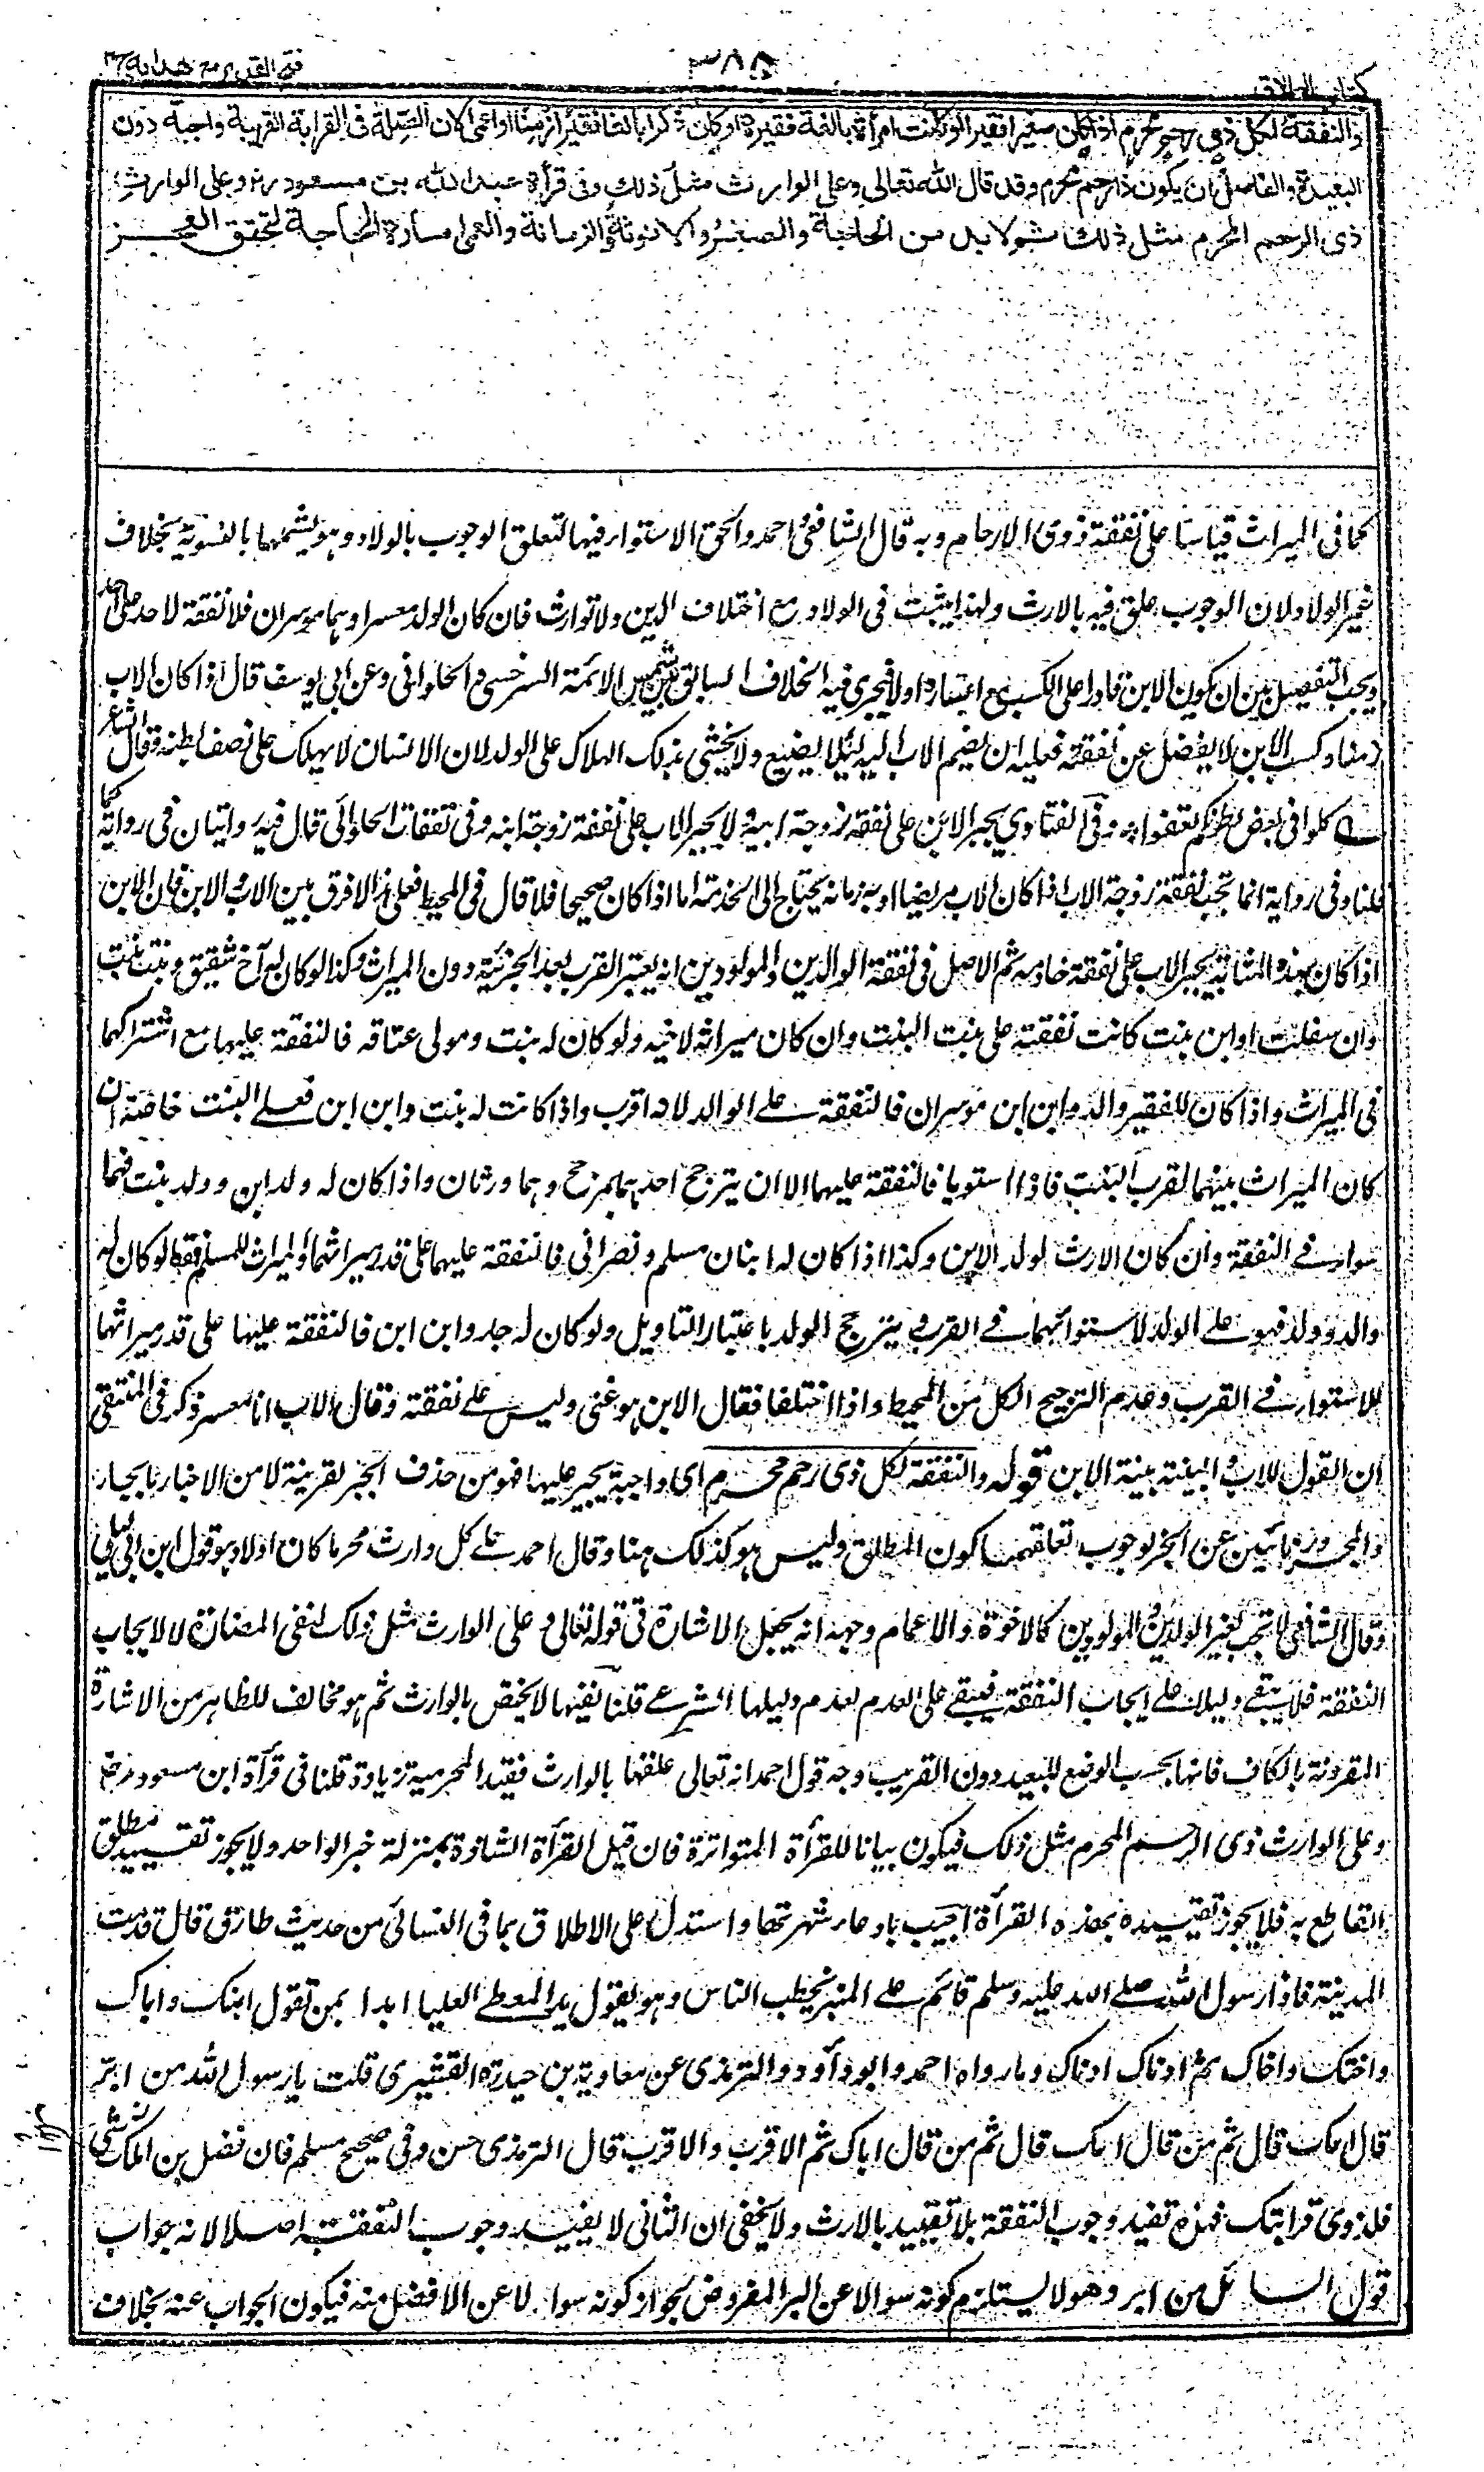 فتح القدير مع هداية ج٢
٣٨٥
كتاب الطلاق
والنفقة لكل ذي رحم محرم اذا كان صغيرا فقيرا او كانت امرأة بالغة فقيرة او كان ذكرا بالغا فقيرا زمنا او اعمى لان الصلة في القرابة القريبة واجبة دون
البعيدة والفاصل ان يكون ذا رحم محرم وقد قال الله تعالى وعلى الوارث مثل ذلك وفى قرأة عبد الله بن مسعود رض وعلى الوارث
ذى الرحم المحرم مثل ذلك ثم لا بد من الحاجة والصغر والانوثة والزمانة والعمى امارة الحاجة لتحقق العجز
كما فى الميراث قياسا على نفقة ذوى الارحام وبه قال الشافعى واحمد والحق الاستواء فيها لتعلق الوجوب بالولاد وهو يشملهما بالتسوية بخلاف
غير الولاد لان الوجوب علق فيه بالارث ولهذا يثبت فى الولاد مع اختلاف الدين ولا توارث فان كان الولد معسرا وهما موسران فلا نفقة لاحد على احد
ويجب التفصيل بين ان يكون الابن قادرا على الكسب مع اعساره اولا فيجرى فيه الخلاف السابق بين شمس الائمة السرخسى والحلوانى وعن ابى يوسف قال اذا كان الاب
زمنا وكسب الابن لا يفضل عن نفقته فعليه ان يضم الاب اليه لئلا يضيع ولا يخشى بذلك الهلاك على الولد لان الانسان لا يهلك على نصف بطنه وقال الشاعر
كلوا فى بعض بطنكم تعفوا وفى الفتاوى يجبر الابن على نفقة زوجة ابيه ولا يجبر الاب على نفقة زوجة ابنه وفى نفقات الحلوانى قال فيه روايتان فى رواية كما
قلنا وفى رواية انما تجب نفقة زوجة الاب اذا كان الاب مريضا او به زمانة يحتاج الى الخدمة اما اذا كان صحيحا فلا قال فى المحيط فعلى هذا لا فرق بين الاب والابن فان الابن
اذا كان بهذه المثابة يجبر الاب على نفقة خادمه ثم الاصل فى نفقة الوالدين والمولودين انه يعتبر القرب بعد الجزئية دون الميراث وكذا لو كان له اخ شقيق وبنت بنت
وان سفلت او ابن بنت كانت نفقته على بنت البنت وان كان ميراثه لاخيه ولو كان له بنت ومولى عتاقه فالنفقة عليها مع اشتراكهما
فى الميراث واذا كان للفقير والد وابن ابن موسران فالنفقة على الوالد لانه اقرب واذا كانت له بنت وابن ابن فعلى البنت خاصة وان
كان الميراث بينهما لقرب البنت فاذا استويا فالنفقة عليهما الا ان يترجح احدهما بمرجح وهما ورثان واذا كان له ولد ابن وولد بنت فهما
سواء فى النفقة وان كان الارث لولد الابن وكذا اذا كان له ابنان مسلم ونصرانى فالنفقة عليهما على قدر ميراثهما والميراث للمسلم فقط لو كان له
والد وولد فهو على الولد لاستوائهما فى القرب ويترجح الولد باعتبار التاويل ولو كان له جد وابن ابن فالنفقة عليها على قدر ميراثهما
للاستواء فى القرب وعدم الترجيح الكل من المحيط واذا اختلفا فقال الابن هو غنى وليس على نفقة وقال الاب انا معسر ذكر فى المنتقى
ان القول للاب والبينة بينة الابن قوله والنفقة لكل ذى رحم محرم اى واجبة يجبر عليها فهو من حذف الخبر لقرينة لا من الاخبار بالجار
والمجرور نائبين عن الخبر لوجوب تعلقهما كون المطلق وليس هو كذلك هنا وقال احمد على كل وارث محرما كان اولا وهو قول ابن ابى ليلى
وقال الشافعى لا تجب لغير الوالدين والمولودين كالاخوة والاعمام وجهه انه يجعل الاشارة فى قوله تعالى وعلى الوارث مثل ذلك لنفى المضارة لا لايجاب
النفقة فلا يبقى دليلا على ايجاب النفقة فيبقى على العدم لعدم دليلها الشرعى قلنا نفيها لا يختص بالوارث ثم هو مخالف للظاهر من الاشارة
المقرونة بالكاف فانها بحسب الوضع للبعيد دون القريب وجه قول احمد انه تعالى علقها بالوارث فقيد المحرمية زيادة قلنا فى قرأة ابن مسعود رض
وعلى الوارث ذى الرحم المحرم مثل ذلك فيكون بيانا للقرأة المتواترة فان قيل القرأة الشاذة بمنزلة خبر الواحد ولا يجوز تقييد مطلق
القاطع به فلا يجوز تقييده بهذه القرأة اجيب بادعاء شهرتها واستدل على الاطلاق بما فى النسائى من حديث طارق قال قدمت
المدينة فاذا رسول الله صلى الله عليه وسلم قائم على المنبر يخطب الناس وهو يقول يد المعطى العليا ابدا بمن تقول امك واباك
واختك واخاك ثم ادناك ادناك وما رواه احمد وابو داود والترمذى عن معاوية بن حيدة القشيرى قلت يا رسول الله من ابر
قال امك قال ثم من قال امك قال ثم من قال اباك ثم الاقرب والاقرب قال الترمذى حسن وفى صحيح مسلم فان فضل من اهلك شئ
فلذوى قرابتك فهذه تفيد وجوب النفقة بلا تقييد بالارث ولا يخفى ان الثانى لا يفيد وجوب النفقة اصلا لانه جواب
قول السائل من ابر وهو لا يستلزم كونه سوالا عن البر المفروض بجواز كونه سوالا عن الافضل منه فيكون الجواب عنه بخلاف